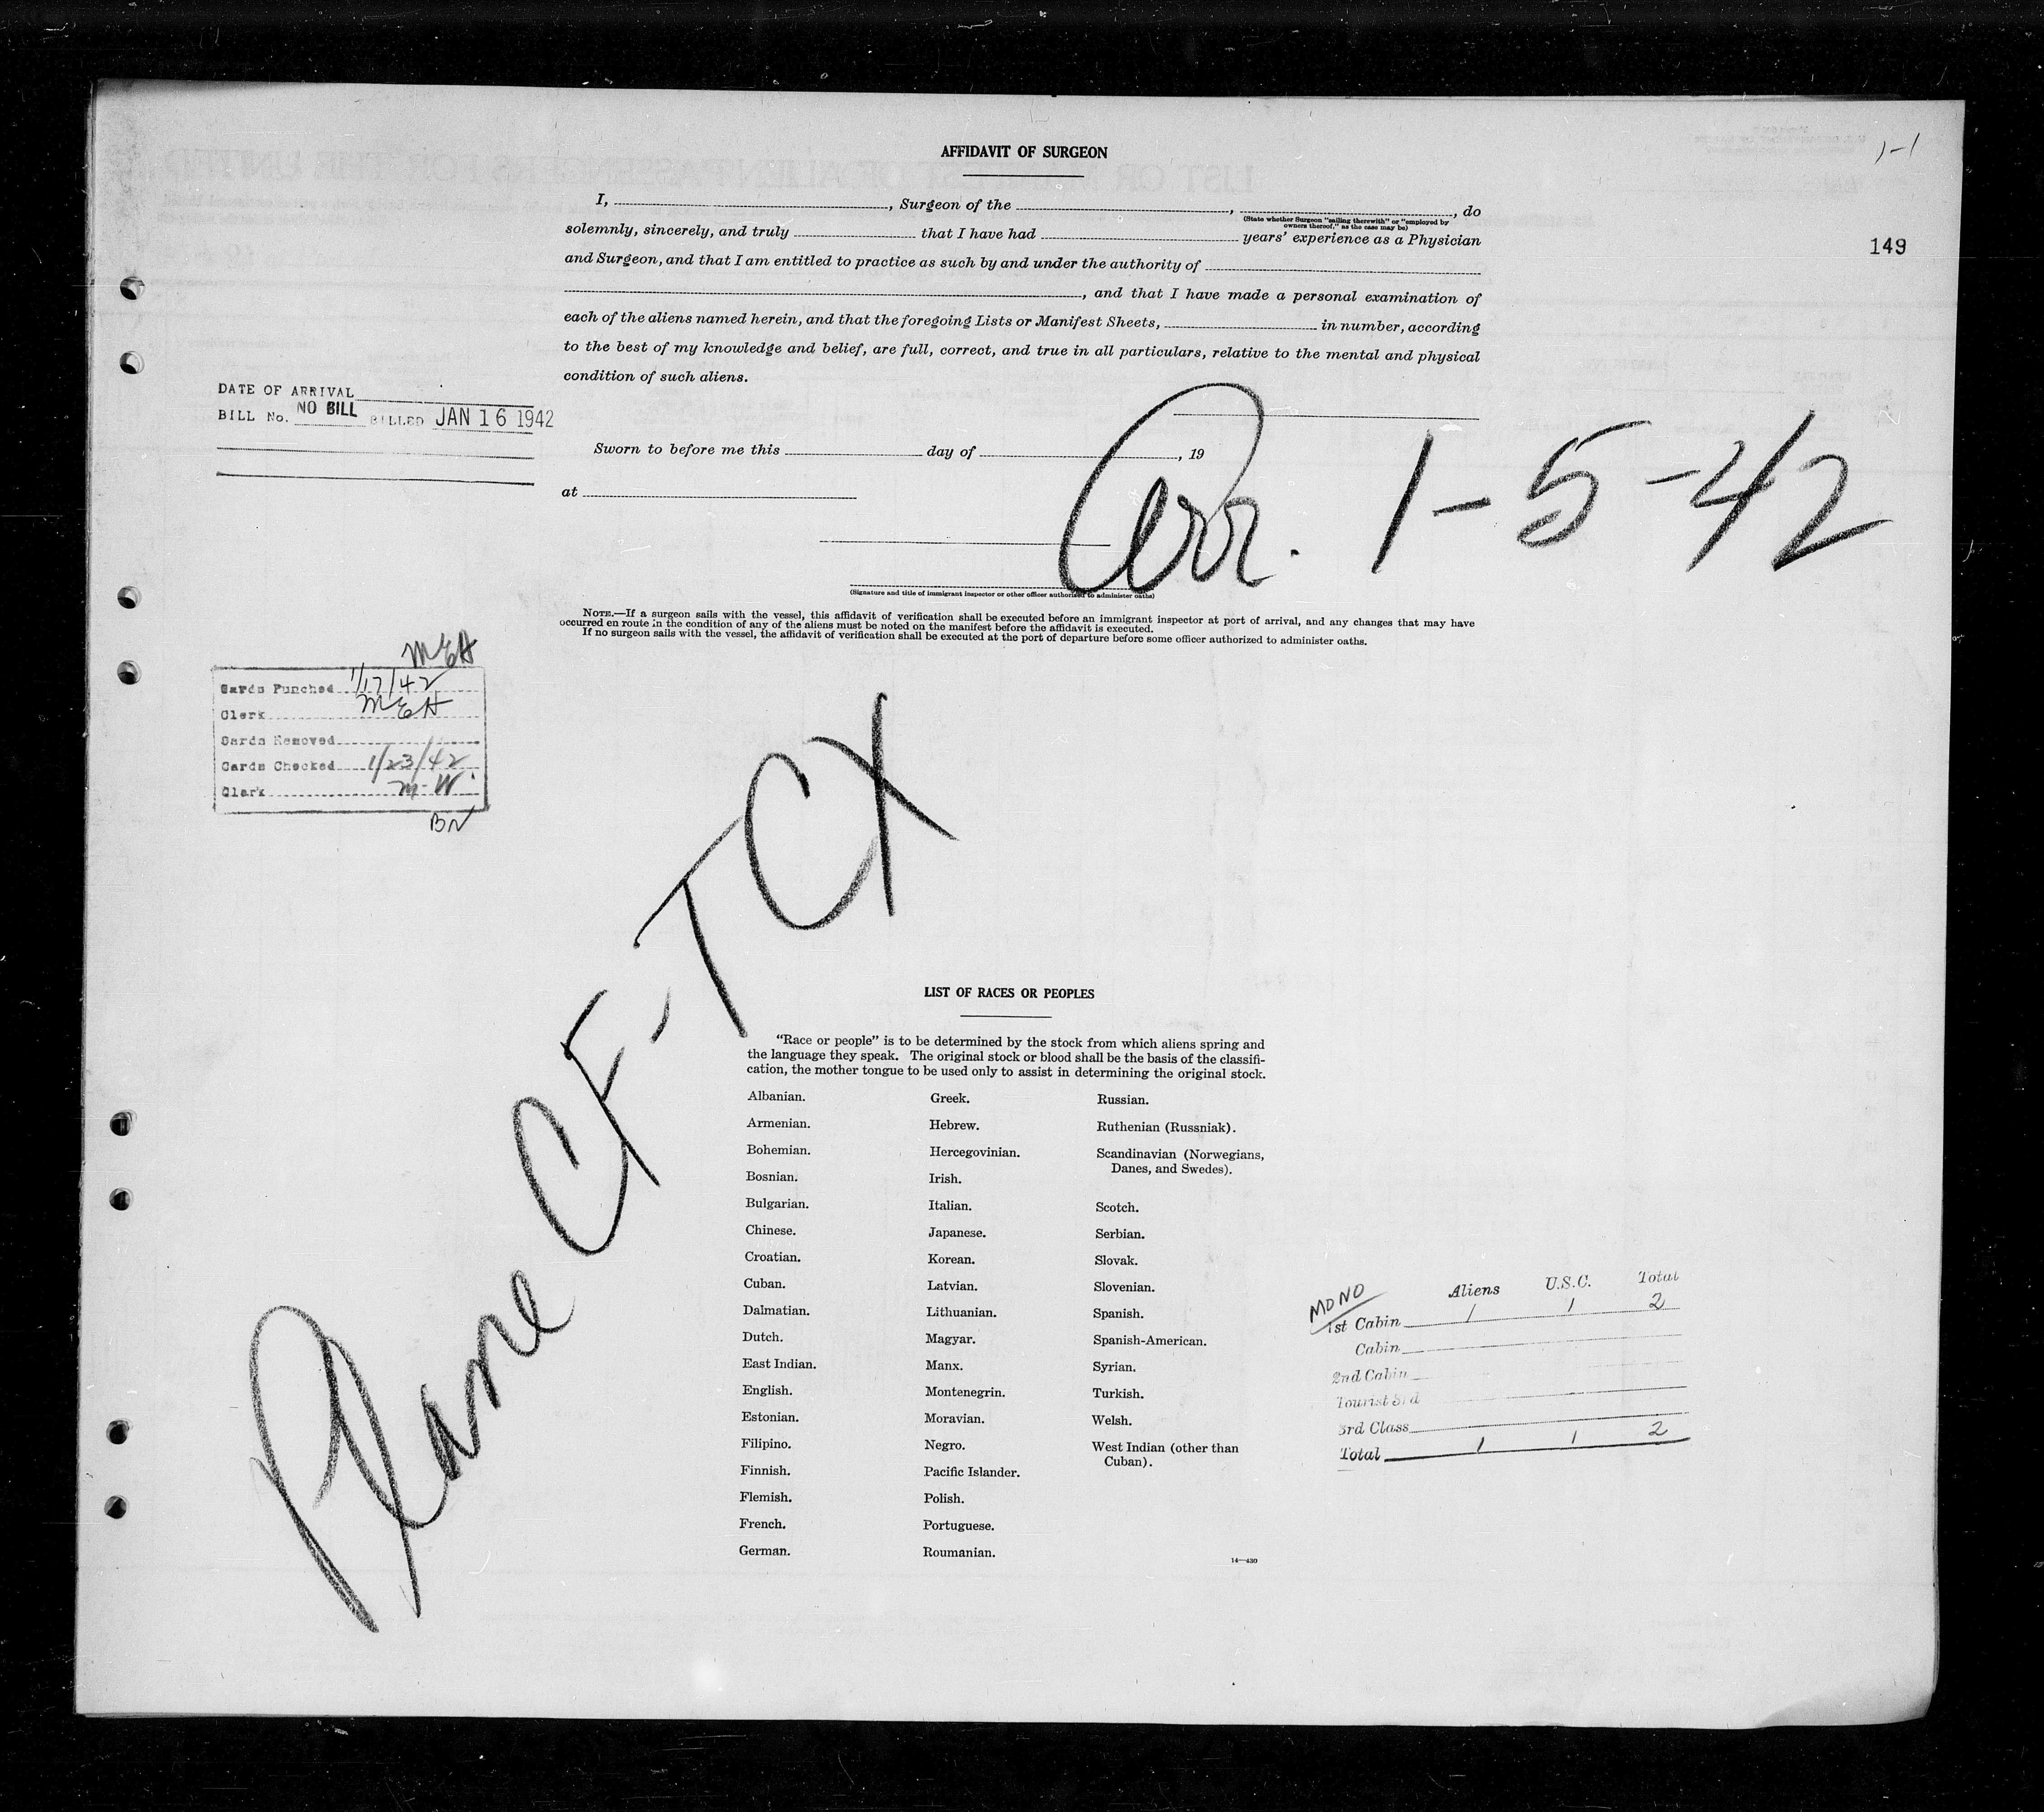 AFFIDAVIT OF SURGEON
1-1
149
I, , Surgeon of the , , do
(State whether Surgeon "sailing therewith" or "employed by owners thereof," as the case may be)
solemnly, sincerely, and truly that I have had years' experience as a Physician
and Surgeon, and that I am entitled to practice as such by and under the authority of
, and that I have made a personal examination of
each of the aliens named herein, and that the foregoing Lists or Manifest Sheets, in number, according
to the best of my knowledge and belief, are full, correct, and true in all particulars, relative to the mental and physical
condition of such aliens.
DATE OF ARRIVAL
BILL No. NO BILL BILLED JAN 16 1942
Sworn to before me this day of , 19
at
Arr. 1-5-42
(Signature and title of immigrant inspector or other officer authorized to administer oaths)
NOTE.—If a surgeon sails with the vessel, this affidavit of verification shall be executed before an immigrant inspector at port of arrival, and any changes that may have
occurred en route in the condition of any of the aliens must be noted on the manifest before the affidavit is executed.
If no surgeon sails with the vessel, the affidavit of verification shall be executed at the port of departure before some officer authorized to administer oaths.
MEH
Cards Punched 1/17/42
Clerk MEH
Cards Removed
Cards Checked 1/23/42
Clerk M-W.
BN
Plane CF-TCX
LIST OF RACES OR PEOPLES
"Race or people" is to be determined by the stock from which aliens spring and
the language they speak. The original stock or blood shall be the basis of the classifi-
cation, the mother tongue to be used only to assist in determining the original stock.
Albanian.
Armenian.
Bohemian.
Bosnian.
Bulgarian.
Chinese.
Croatian.
Cuban.
Dalmatian.
Dutch.
East Indian.
English.
Estonian.
Filipino.
Finnish.
Flemish.
French.
German.
Greek.
Hebrew.
Hercegovinian.
Irish.
Italian.
Japanese.
Korean.
Latvian.
Lithuanian.
Magyar.
Manx.
Montenegrin.
Moravian.
Negro.
Pacific Islander.
Polish.
Portuguese.
Roumanian.
Russian.
Ruthenian (Russniak).
Scandinavian (Norwegians,
Danes, and Swedes).
Scotch.
Serbian.
Slovak.
Slovenian.
Spanish.
Spanish-American.
Syrian.
Turkish.
Welsh.
West Indian (other than
Cuban).
14—430
MONO
Aliens U.S.C. Total
1st Cabin 1 1 2
Cabin
2nd Cabin
Tourist 3rd
3rd Class
Total 1 1 2